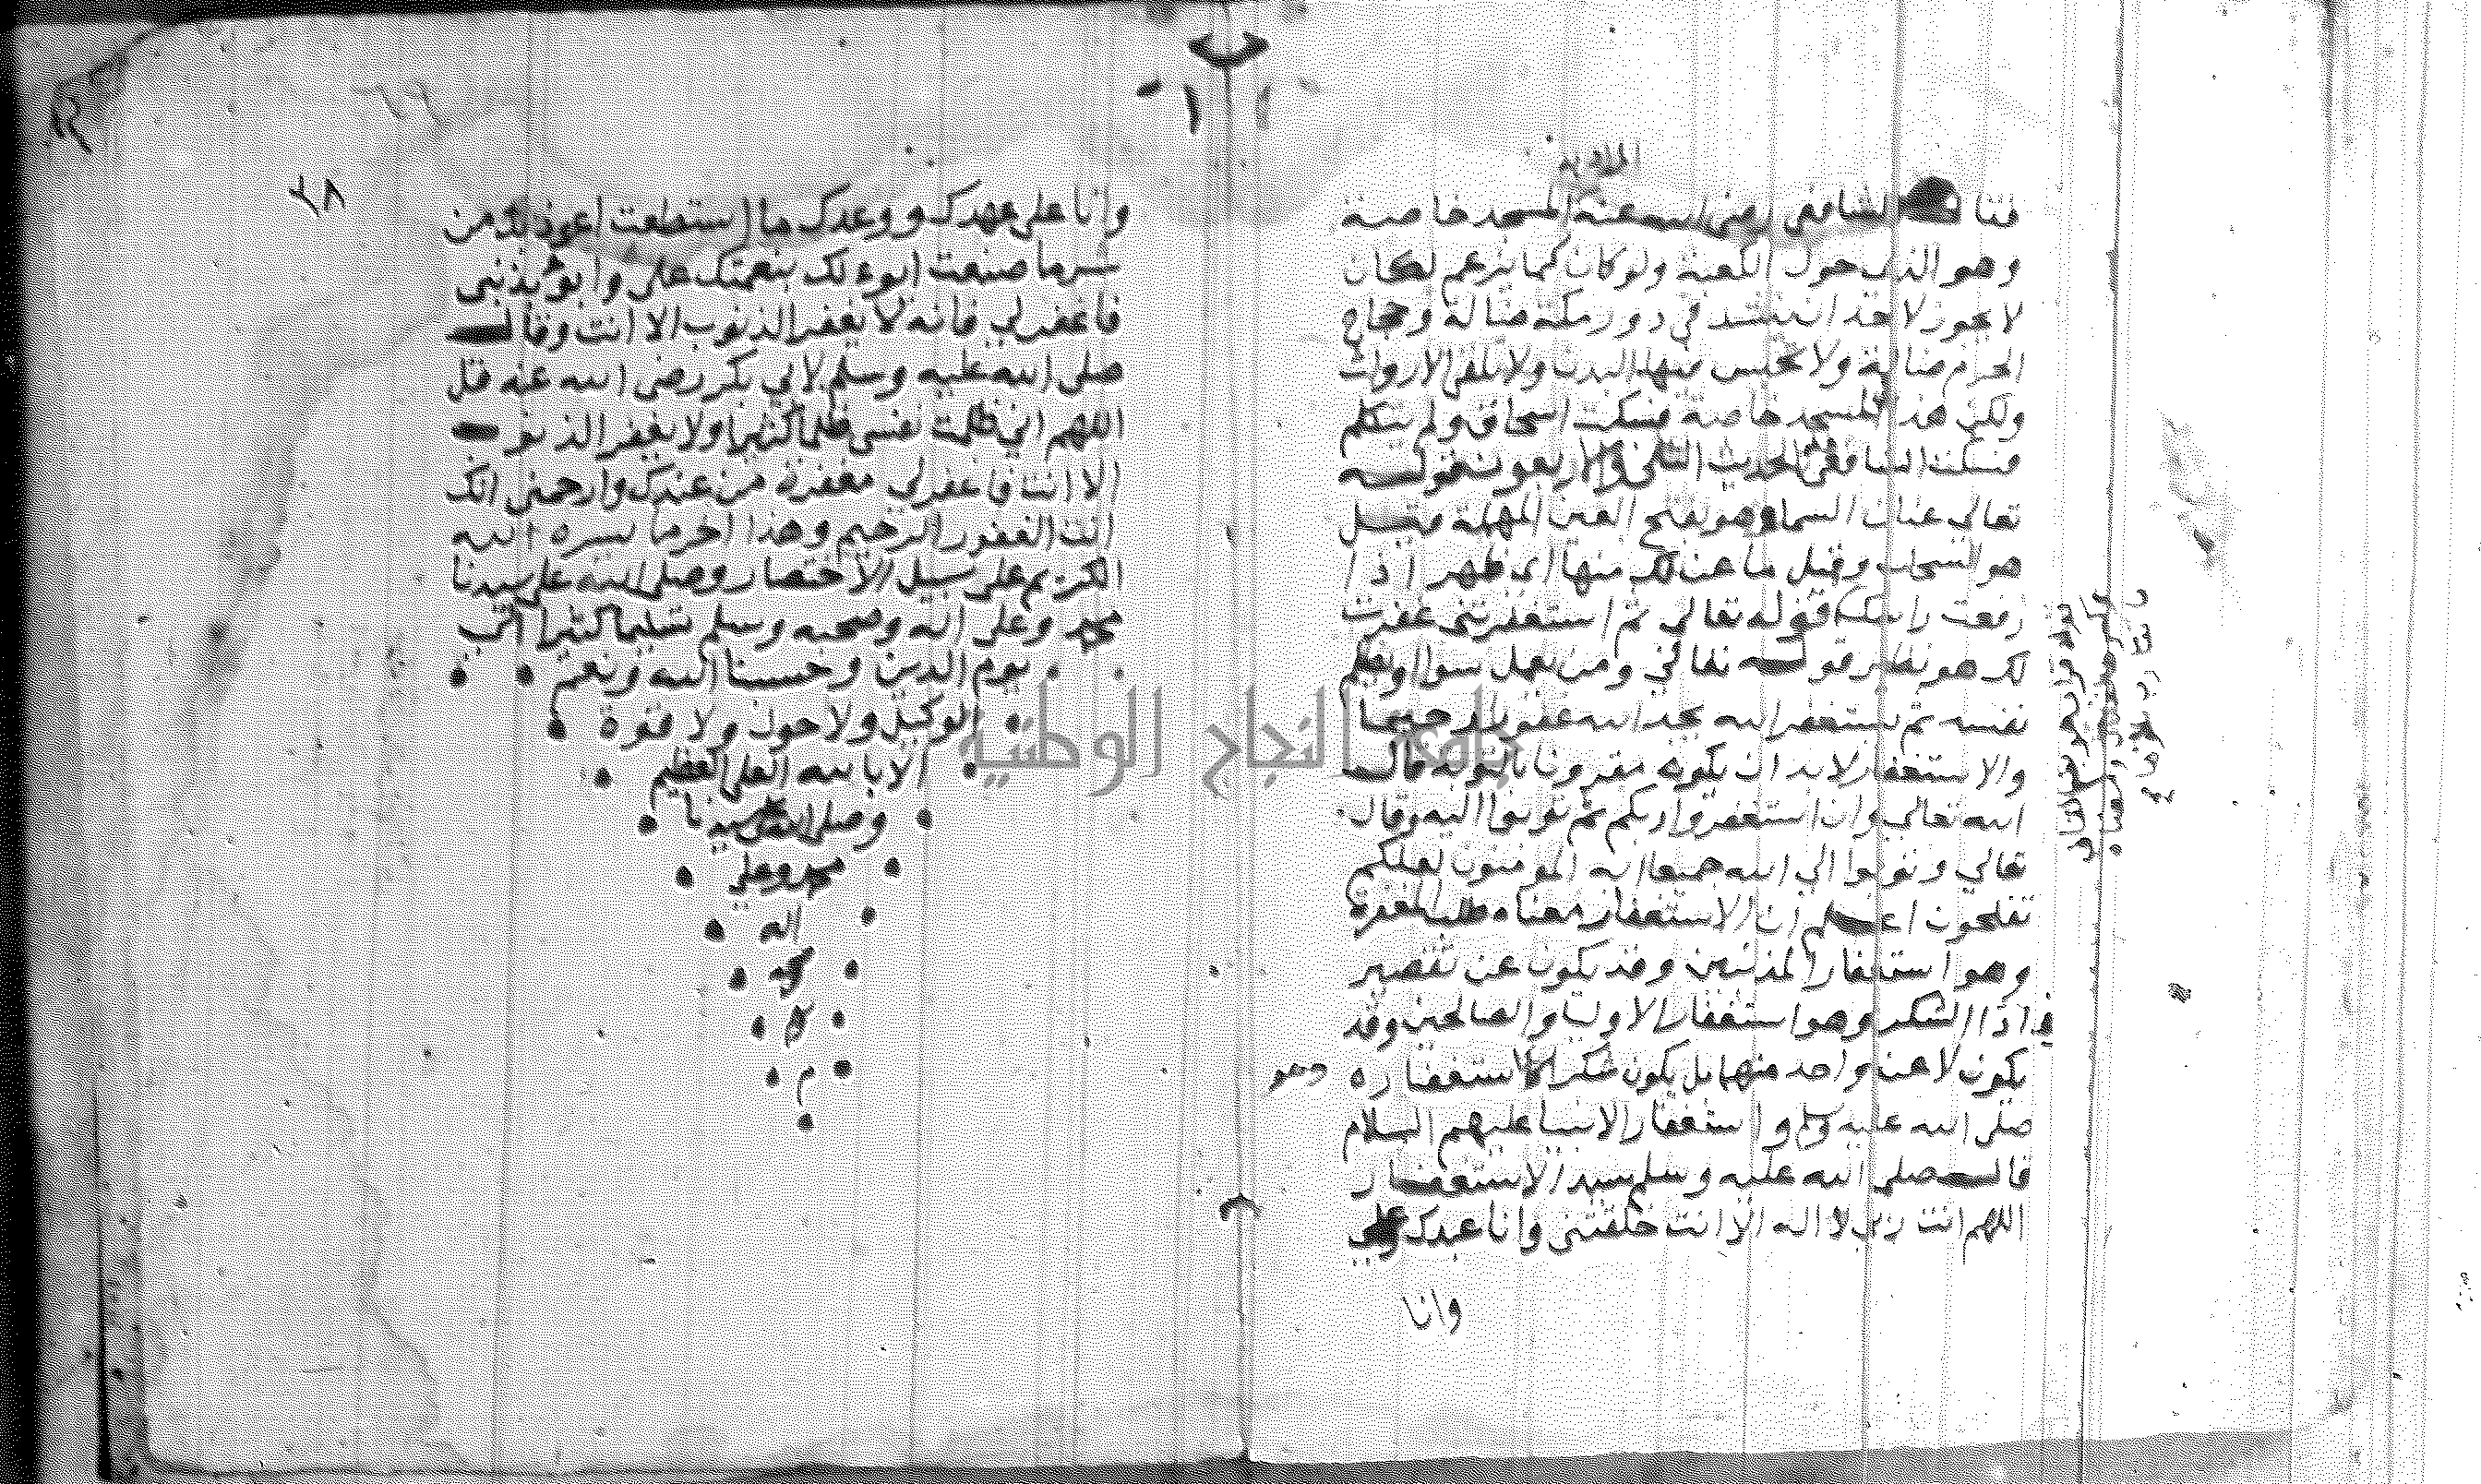 فقال الشافعي رضي الله عنه المسجد خاصة
وهو الذي حول الكعبة ولو كان كما يزعم لكان
لا يجوز لاحد ان ينشد في دور مكة ضالة وحجاج
الحرم ضالة ولا تحبس فيها البدن ولا يلقي الارواث
ولكن هذا المسجد خاصة فسكت اسحاق ولم يتكلم
فسكت الشافعي الحديث الثاني والاربعون قوله
تعالي عنان السما وهو بفتح العين المهملة قيل
هو السحاب وقيل ما عن لك منها اي ظهر اذا
رفعت راسك قوله تعالي ثم استغفرتني غفرت
لك هو نظير قوله تعالي ومن يعمل سوا او يظلم
نفسه ثم يستغفر الله يجد الله غفورا رحيما
والاستغفار لا بد ان يكون مقرونا بالتوبة قال
الله تعالي وان استغفروا ربكم ثم توبوا اليه وقال
تعالي وتوبوا الي الله جميعا ايه المومنون لعلكم
تفلحون اعلم ان الاستغفار معناه طلب المغفرة
وهو استغفار المذنبين وقد يكون عن تقصير
في اذا الشكر وهو استغفار الاوليا والصالحين وقد
يكون لا عن واحد منهما بل يكون شكرا وهو استغفاره
صلي الله عليه وسلم واستغفار الانبيا عليهم السلام
قال صلي الله عليه وسلم سيد الاستغفار
اللهم انت ربي لا اله الا انت خلقتني وانا عبدك
وانا
٢٨
وانا علي عهدك ووعدك ما استطعت اعوذ بك من
شر ما صنعت ابوء لك بنعمتك علي وابو بذنبي
فاغفر لي فانه لا يغفر الذنوب الا انت وقال
صلي الله عليه وسلم لابي بكر رضي الله عنه قل
اللهم اني ظلمت نفسي ظلما كثيرا ولا يغفر الذنوب
الا انت فاغفر لي مغفرة من عندك وارحمني انك
انت الغفور الرحيم وهذا اخر ما يسره الله
الكريم علي سبيل الاختصار وصلي الله علي سيدنا
محمد وعلي اله وصحبه وسلم تسليما كثيرا الي
يوم الدين وحسبنا الله ونعم
الوكيل ولا حول ولا قوة
الا بالله العلي العظيم
وصلي الله علي سيدنا
محمد وعلي
اله
م
جامعة النجاح الوطنية